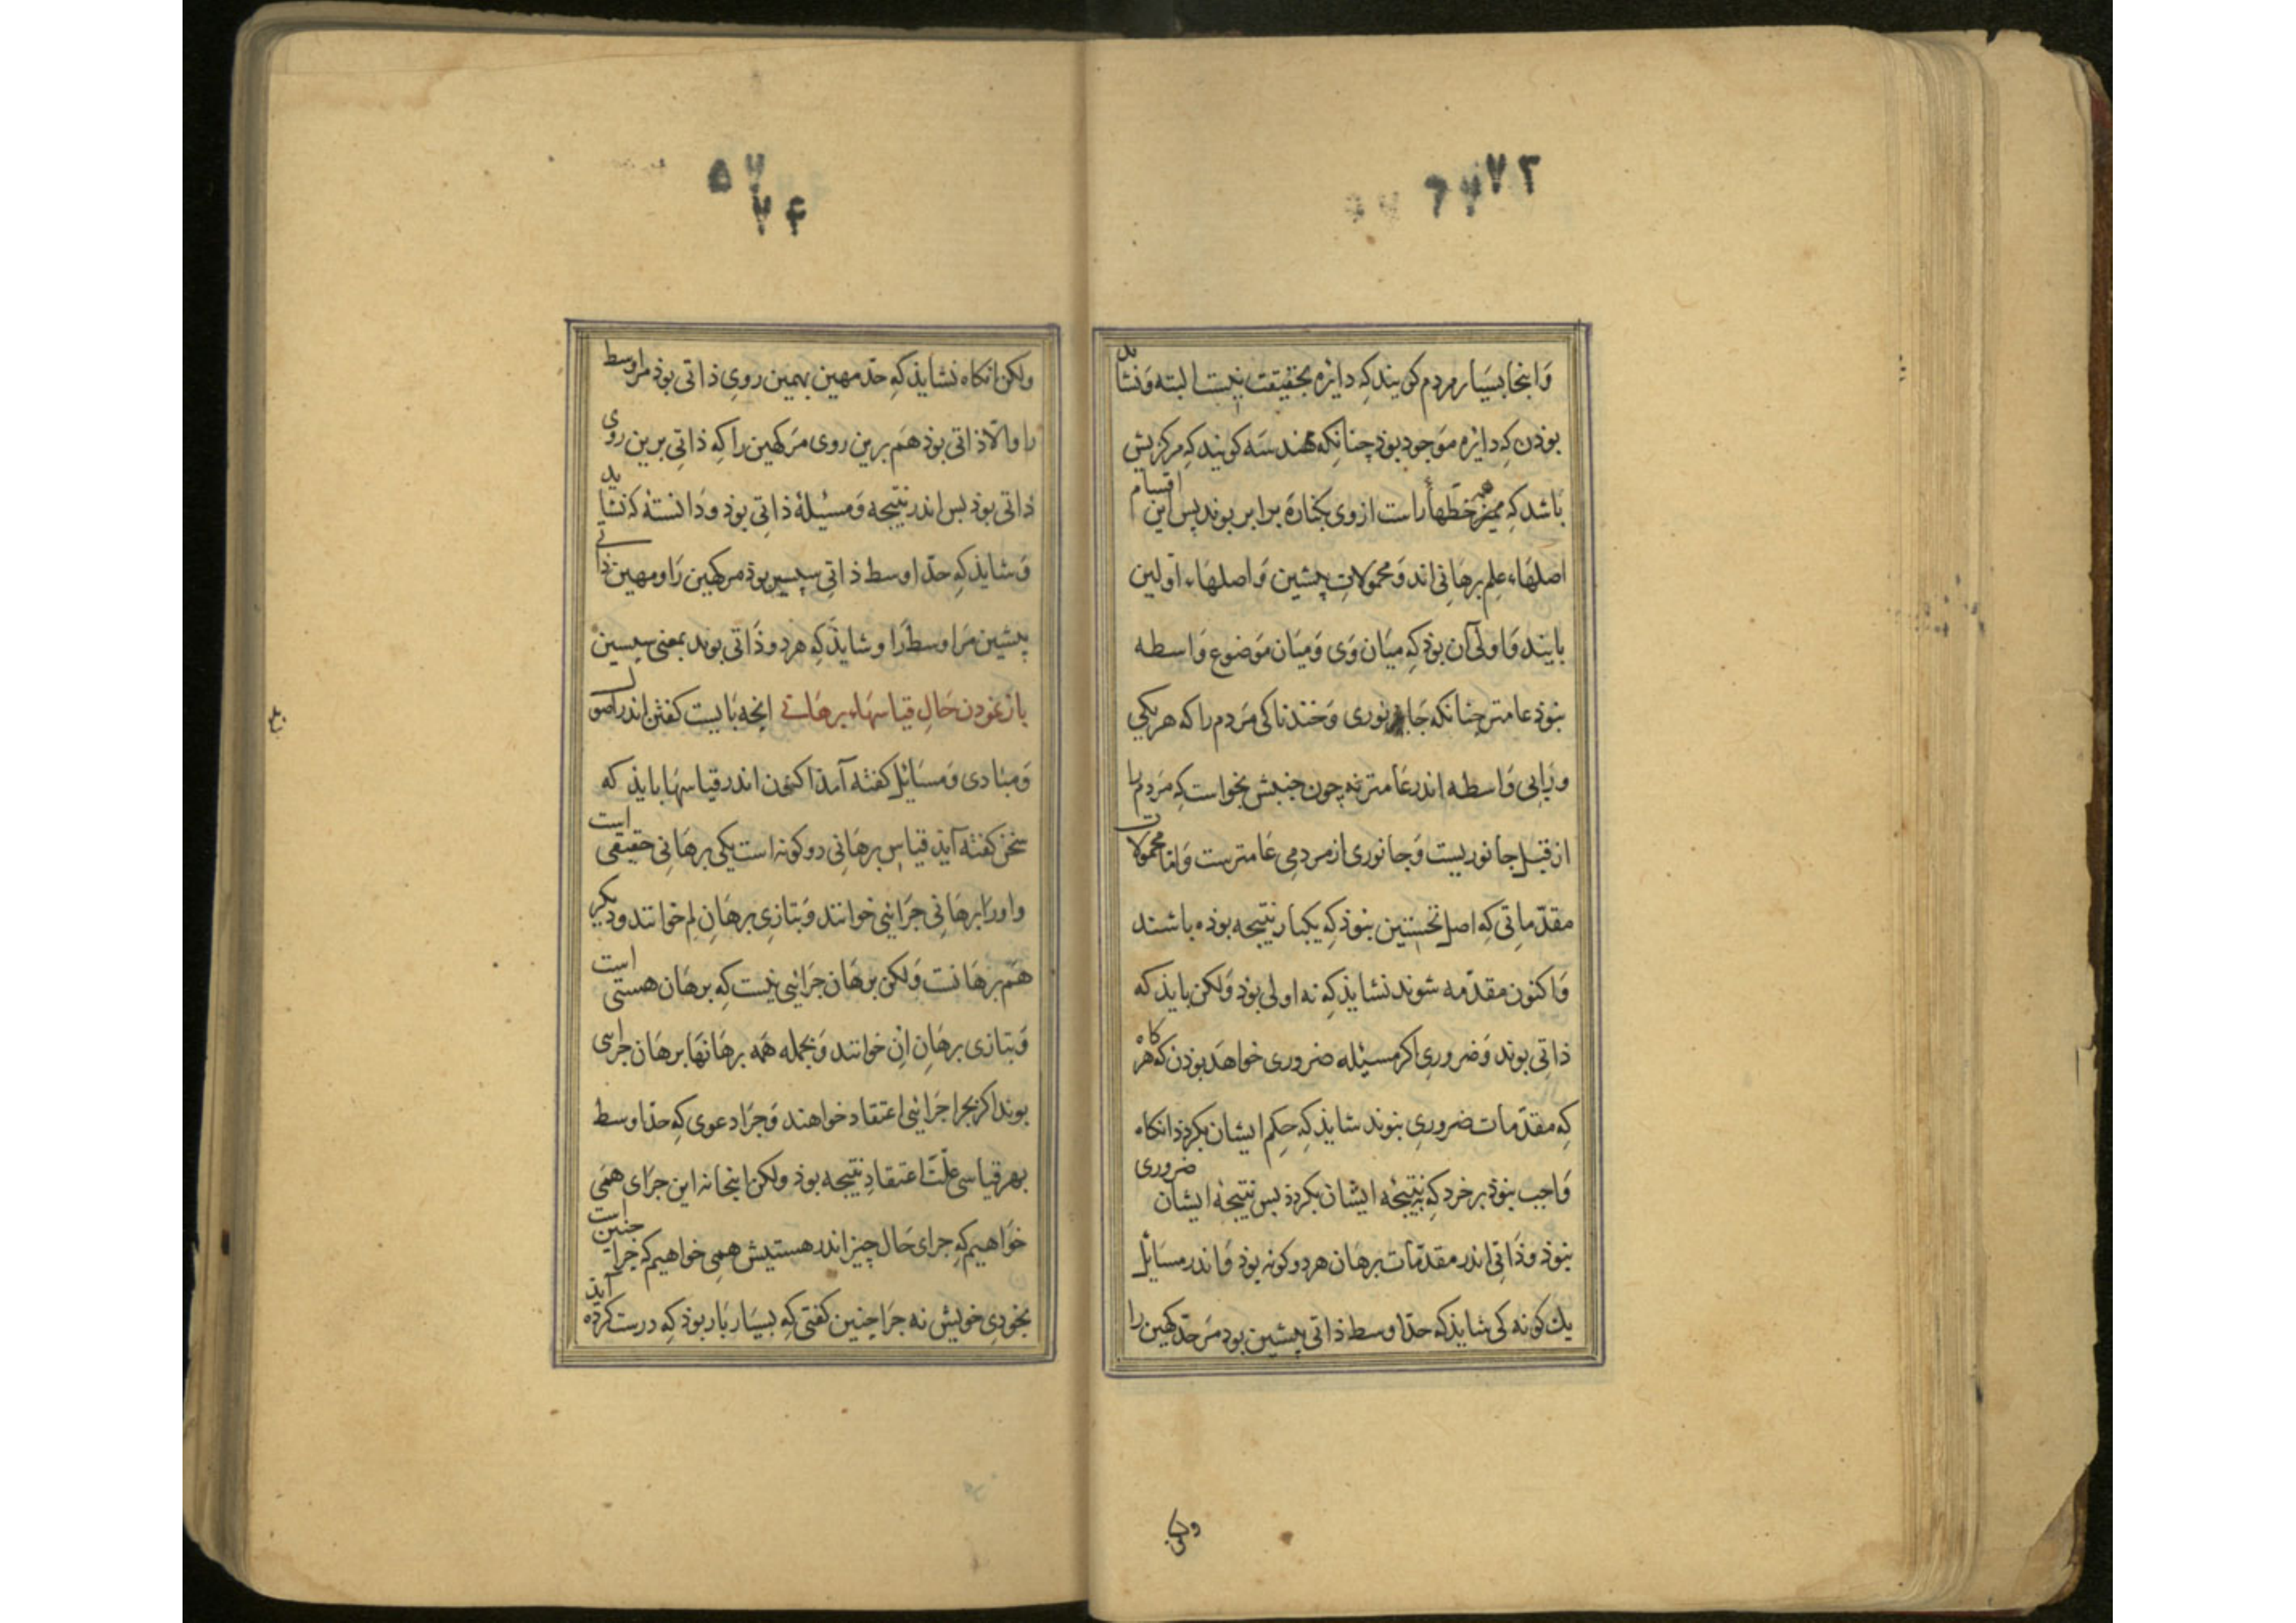 ۷۳
وَاینجا بسیَار مردم کویند کِه دایزه بحقیقت نیست البته وَنشاید
بوذن کِه دایره مَوجود بوذ چنانکه هندسَه کویند که مرکزیش
باشد کِه همه خطّهأ راست از وی بکنارَه برابر بوند پس این اقسام
اصلهَاء علِم برهَانی اند وَمحمُولاتِ پیشین وَاصلهَاء اوّلین
بایند وَاولی آن بوَذ کِه میَان وَی وَمیَان مَوضوع وَاسطه
نبوَذ عامتر چنانکه جَانوری وَخندناکی مَردم را که هر یکی
ورَابی وَاسطه اندر عَامتر نه چون جنبش بخواست کِه مَردم را
از قبل جانوریست وَجانوری از مردمی عَامترست وَاما محمولات
مقدّماتی کِه اصل نخستین نبوَذ کِه یکبار نتیجه بوذه باشند
وَاکنون مقدّمه شوند نشایذ کِه نه اولی بوَذ وَلکن بایذ که
ذاتی بوند وَضروری اکر مسئله ضروری خواهَد بوذن کِه هر کاه
کِه مقدّمات ضروری نبوند شایذ کِه حکم ایشان بکرذذ انکاه
وَاجب نبوَذ بر خرد کِه نتیجۀ ایشان بکرذذ بس نتیجۀ ایشان ضروری
نبوذ وذَاتی اندر مقدّمات برهان هر دو کونه بوذ وَاندر مسَایل
یك کونه کی شایذ که حدّ اوسط ذاتی پیشین بود مَر حدّ کهین را
ولکن
۷۴
ولکن انکاه نشایذ کِه حدّ مهین بهمین رویِ ذاتی بوذ مر اوسط
را والّا ذاتی بوذ هَم برین روی مَر کهین را کِه ذاتِی برین روی
ذاتی بوذ بس اندر نتیجه وَمسئلۀ ذاتِی بوذ ودَانستۀ کِه نشاید
وَشایذ کِه حدّ اوسط ذاتِی سپسین بوذ مر کهین رَا ومهین ذاتی
پیشین مَر اوسط رَا وشایذ کِه هر دو ذَاتی بوند بمعنی سپسین
باز نمودن حَالِ قیاسهَاء برهَانی انچه بَایست کفتن اندر اصول
وَمبَادی وَمسَایل کفته آمذ اکنون اندر قیاسهَا بایذ که
سخن کفته آید قیاسِ برهَانی دو کونه است یکی برهَانی حقیقی است
واو رَا برهَانی چرَائی خوانند وَبتازیِ برهَانِ لِم خوانند ودیکر
هَم برهَانست وَلکن برهَان چرَائی نیست کِه برهَان هستی است
وَبتازی برهَانِ انِ خوانند وَبجمله همَه برهَانهَا برهَان چرایی
بوند اکر بچرا چرَائی اعتقاد خواهند وَچرَا دعوی کِه حدّ اوسط
بهر قیاسی علّت اعتقادِ نتیجه بوذ ولکن اینجا نه این چرَای همَی
خَواهیم کِه چرای حَال چیز اندر هستیش همی خواهیم که چرا چنین است
بخودیِ خویش نه چرَا چنین کفتی کِه بسیَار بار بوذ کِه درست کرده آیذ